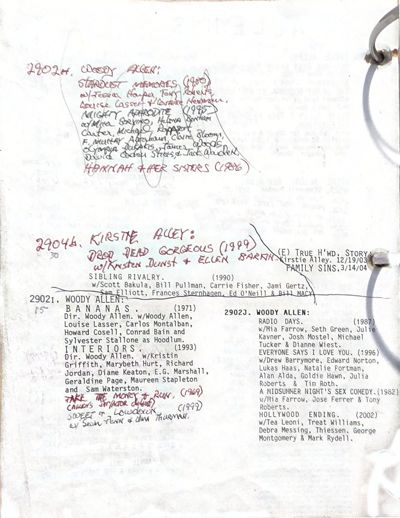 2902H. WOODY ALLEN:
STARDUST MEMORIES (1980)
w/Jessica Harper, Tony Roberts,
Louise Lasser & Laraine Newman.
MIGHTY APHRODITE (1995)
w/Mira Sorvino, Helena Bonham
Carter, Michael Rapaport
F. Murray Abraham, Claire Bloom,
Olympia Dukakis, James Woods
David Ogden Stiers & Jack Warden.
HANNAH & HER SISTERS (1986)
2904b. KIRSTIE ALLEY:
30 DROP DEAD GORGEOUS (1999)
w/Kirsten Dunst & ELLEN BARKIN.
(E) TRUE H'WD. STORY
Kirstie Alley. 12/19/03
FAMILY SINS,3/14/04
SIBLING RIVALRY. (1990)
w/Scott Bakula, Bill Pullman, Carrie Fisher, Jami Gertz,
Sam Elliott, Frances Sternhagen, Ed O'Neill & Bill MACY
2902I. WOODY ALLEN:
15 B A N A N A S . (1971)
Dir. Woody Allen. w/Woody Allen,
Louise Lasser, Carlos Montalban,
Howard Cosell, Conrad Bain and
Sylvester Stallone as Hoodlum.
I N T E R I O R S . (1993)
Dir. Woody Allen. w/Kristin
Griffith, Marybeth Hurt, Richard
Jordan, Diane Keaton, E.G. Marshall,
Geraldine Page, Maureen Stapleton
and Sam Waterston.
TAKE THE MONEY & RUN. (1969)
SWEET & LOWDOWN (1999)
w/ Sean Penn & Uma Thurman.
2902J. WOODY ALLEN:
RADIO DAYS. (1987)
w/Mia Farrow, Seth Green, Julie
Kavner, Josh Mostel, Michael
Tucker & Dianne Wiest.
EVERYONE SAYS I LOVE YOU. (1996)
w/Drew Barrymore, Edward Norton,
Lukas Haas, Natalie Fortman,
Alan Alda, Goldie Hawn, Julia
Roberts & Tim Roth.
A MIDSUMNER NIGHT'S SEX COMEDY.(1982)
w/Mia Farrow, Jose Ferrer & Tony
Roberts.
HOLLYWOOD ENDING. (2002)
w/Tea Leoni, Treat Williams,
Debra Messing, Thiessen, George
Montgomery & Mark Rydell.